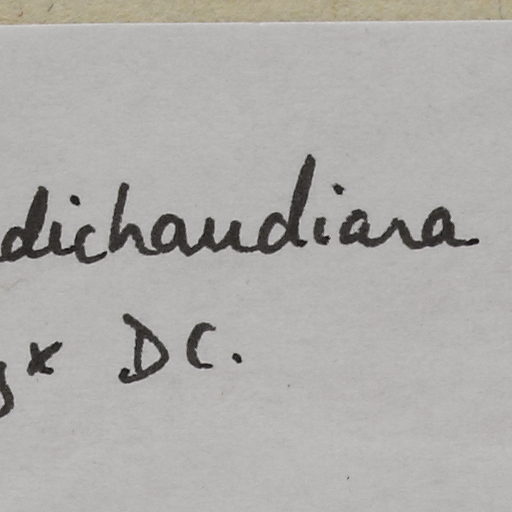 dichaudiana
x DC.